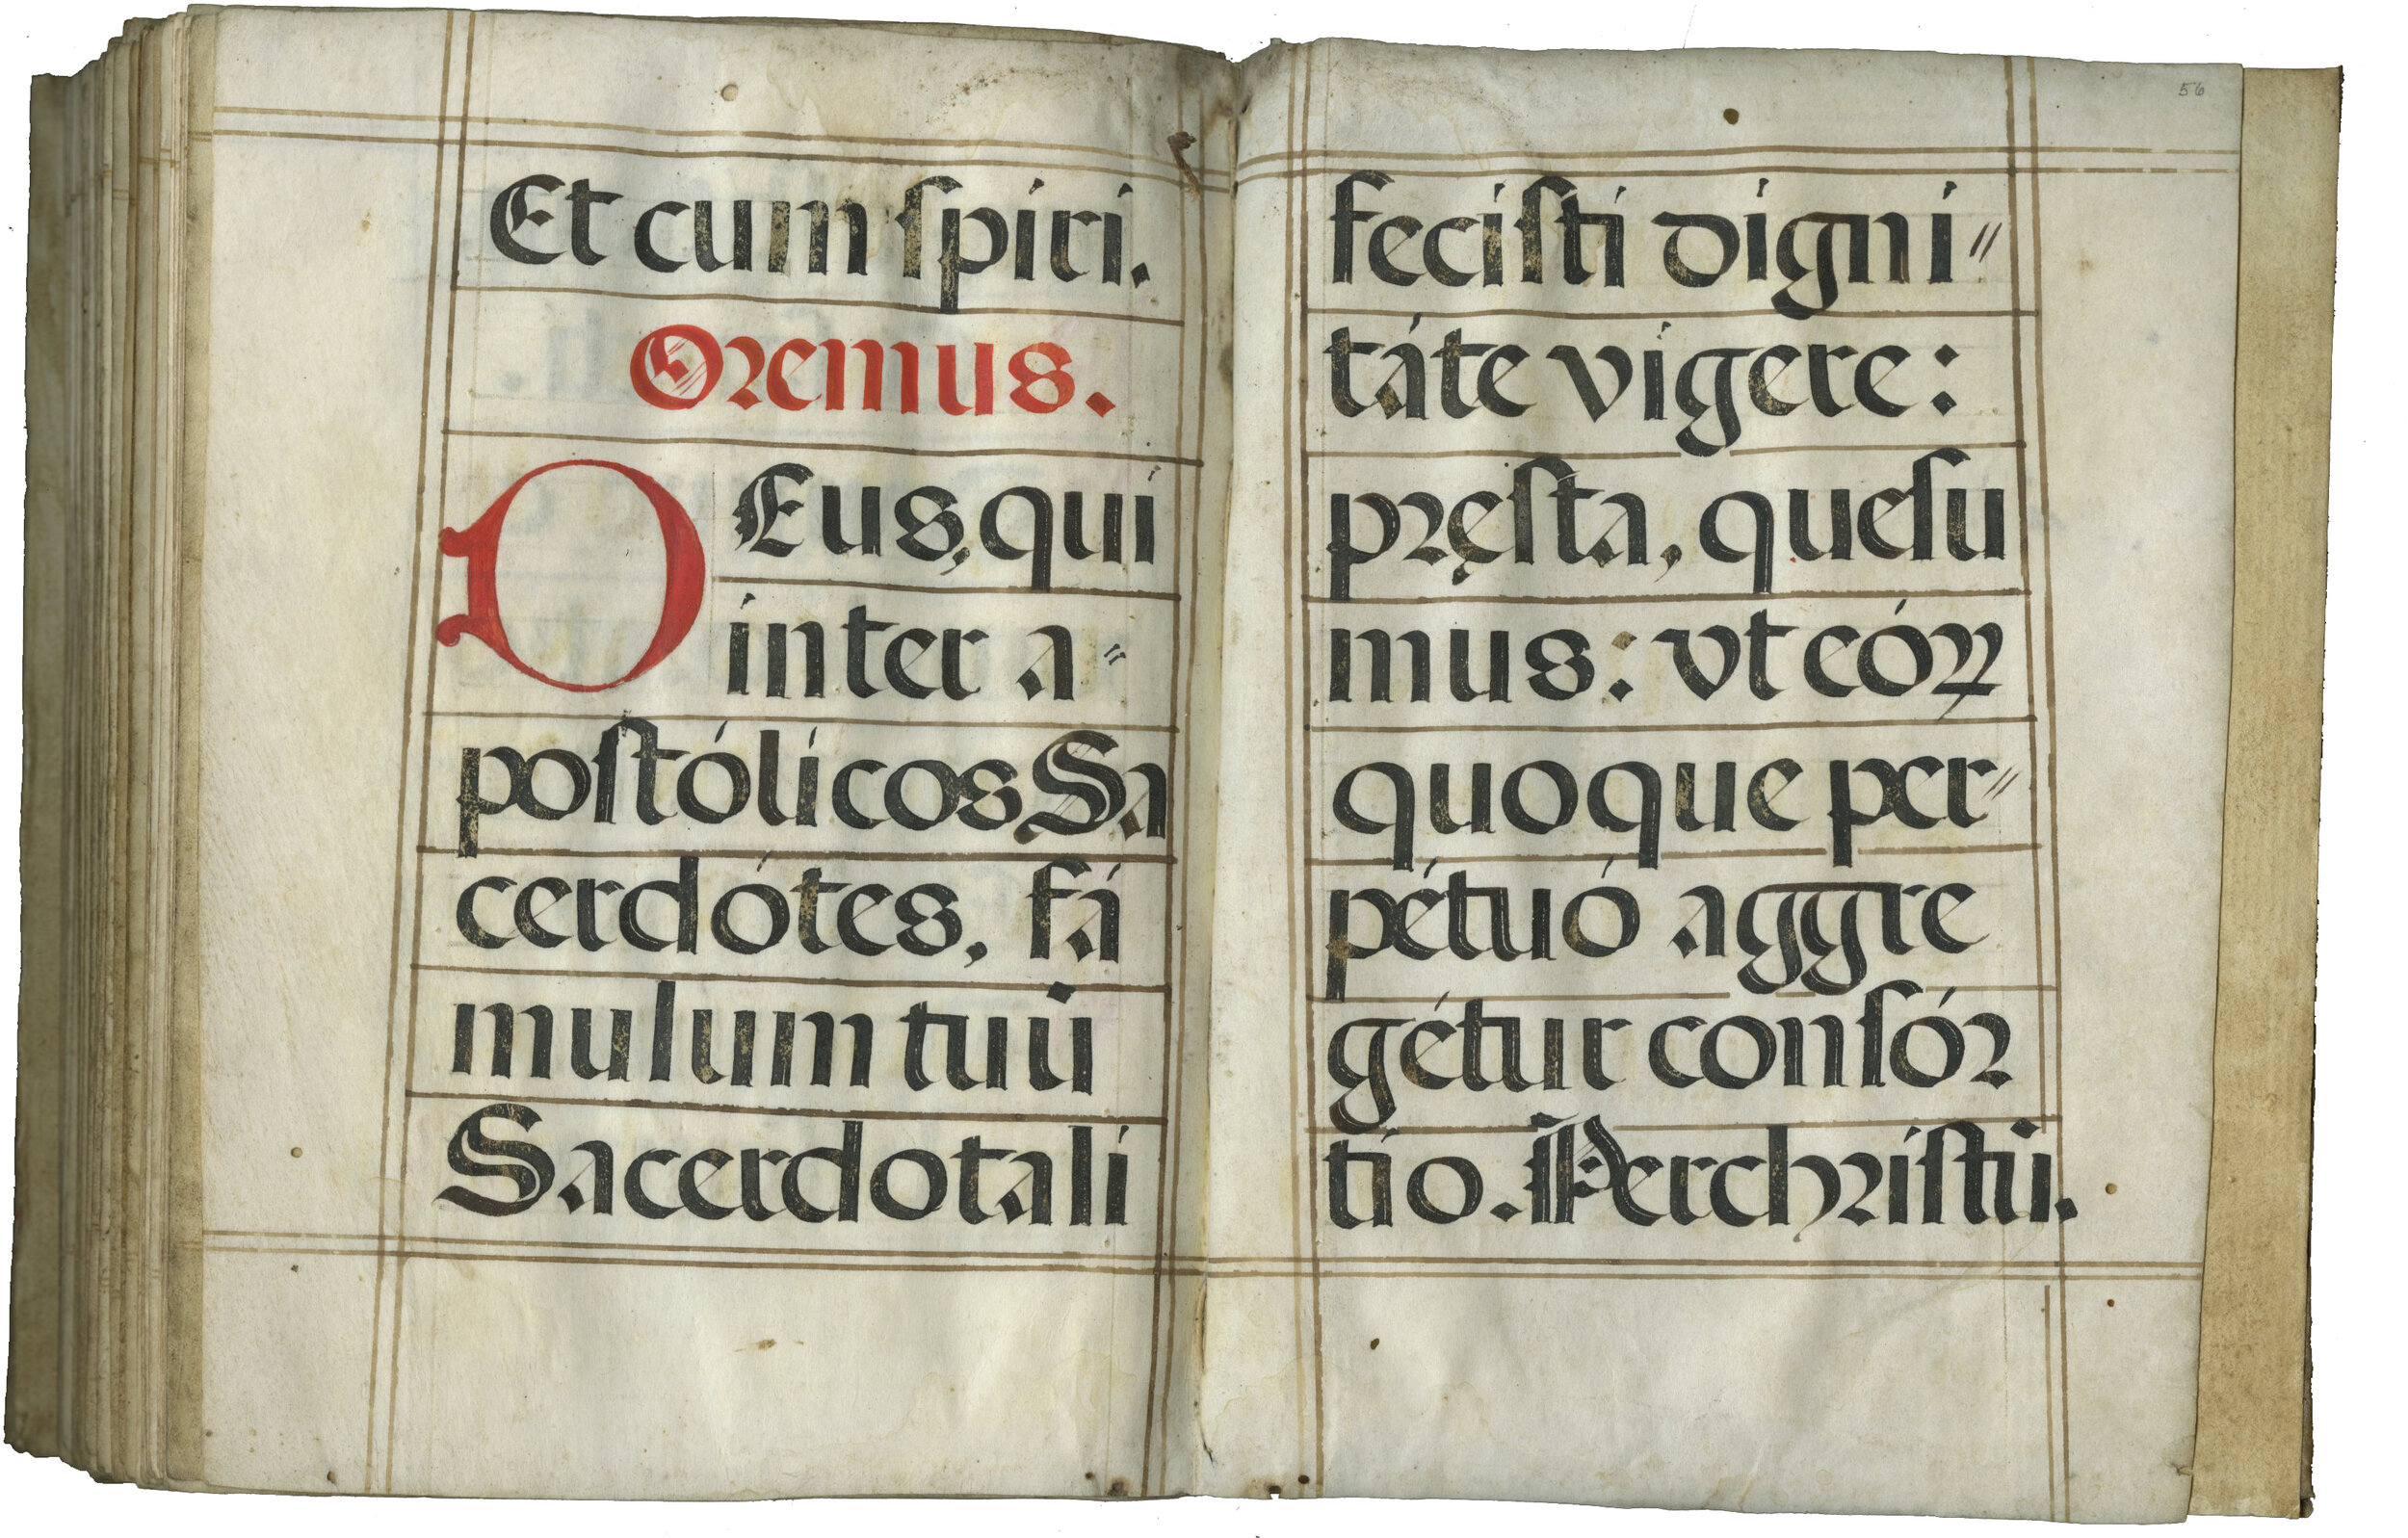 Et cum ſpiri.
Oremus.
DEus, qui
inter a⸗
poſtólicos Sa
cerdótes, fá
mulum tuū
Sacerdotali
56
feciſti digni⸗
táte vigere:
pręſta, queſu
mus: vt eóꝝ
quoque per⸗
pétuó aggre
gétur conſór
tio. Per chriſtū.